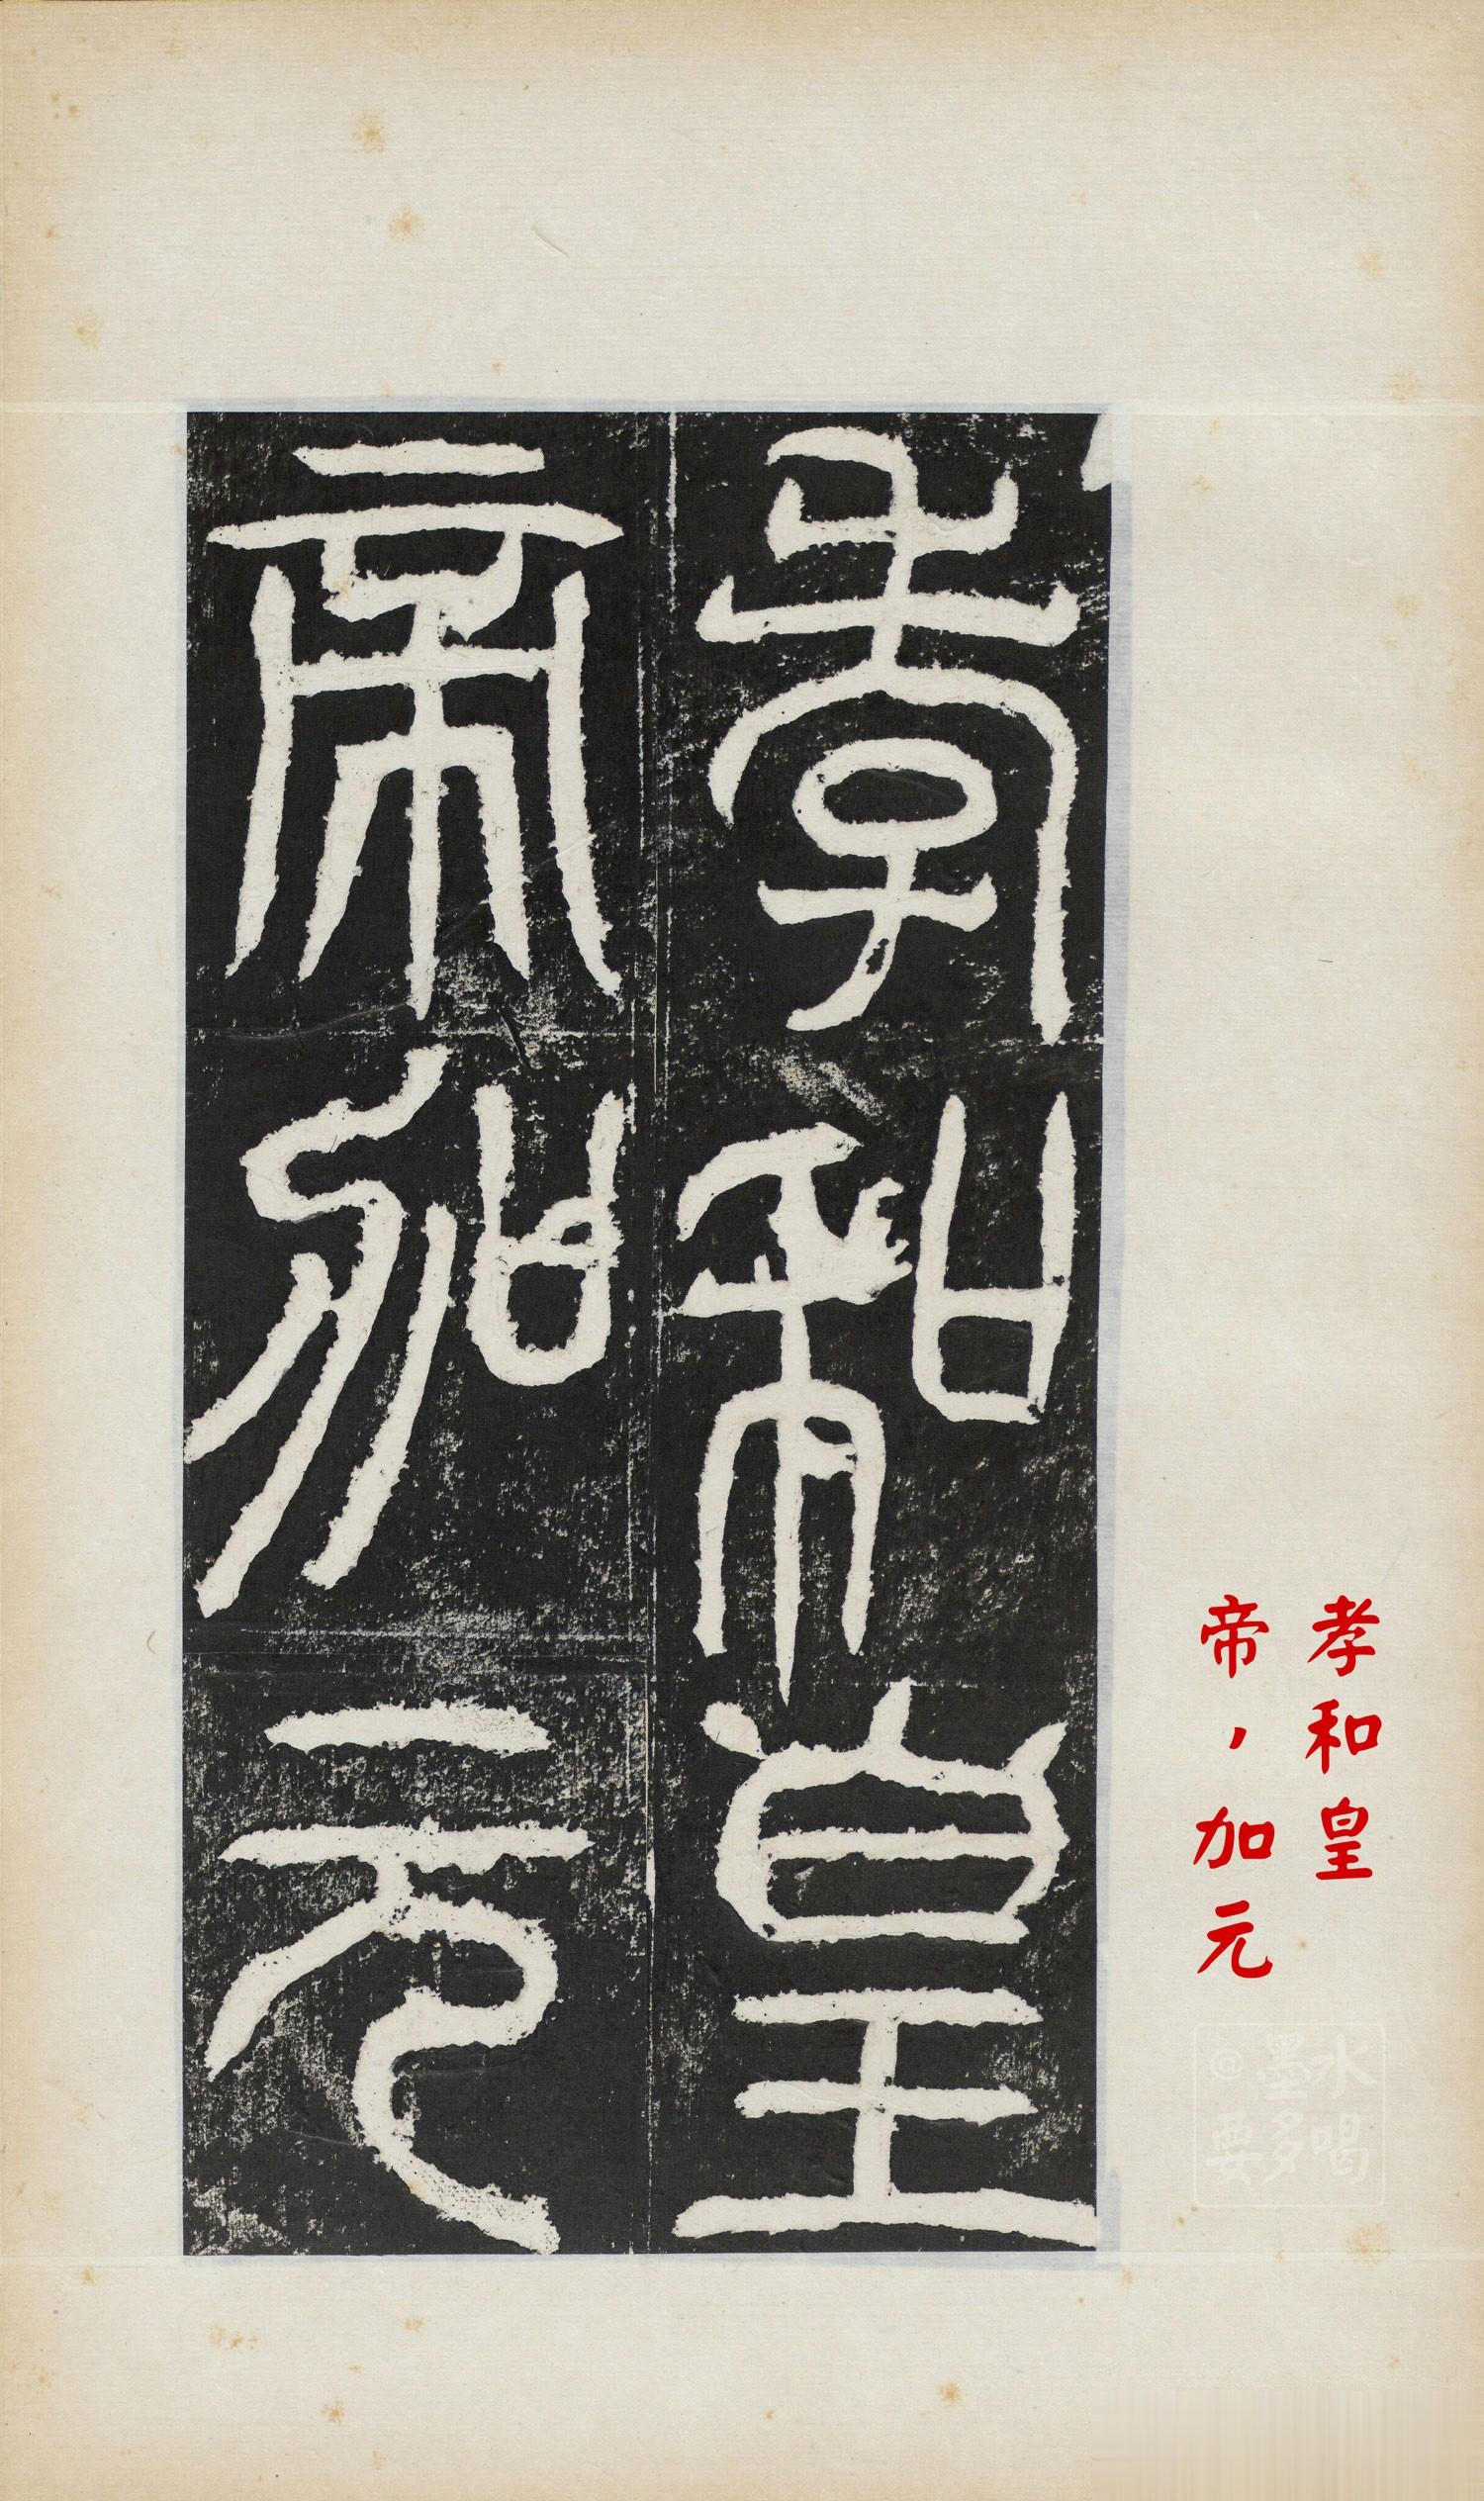 孝和皇
帝加元
孝和皇
帝，加元
@墨水
要多喝